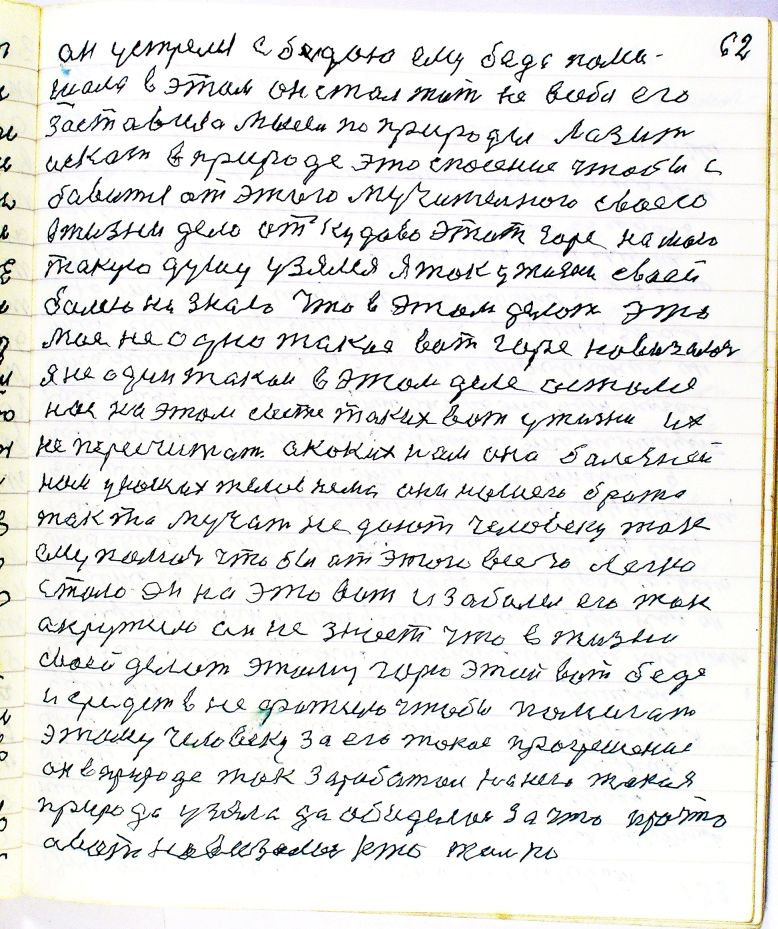 62
он устрелил с бедою ему беда пома-
шала в этом он стал жит не в себя его
заставила мысли по природи лазит
искат в природе это спосение чтобы с
бавится от этого мучителного своего
жизни дело от куда во этот горе на мою
такую душу узялся я ток у жизни своей
болею на знаю что в этом делат это
мое не одно такое вот горе
я не один такой в этом деле остоле
нас на этом свети таких вот у жизни их
не пересчитат а коких нам она болезней
нам у наших телов чема они нашего брата
так та мучат не дают человеку так
ему помоч чтобы от этого всего легко
стало он на это вот и заболел его так
акружило он не знает что в жизни
своей делат этому горю этой вот беде
и средств не фатило чтобы помигат
этому человеку за его такое прогрешение
он в природе так заработал на него такая
природа узяла да обиделас за что про что
а вот кто жал по